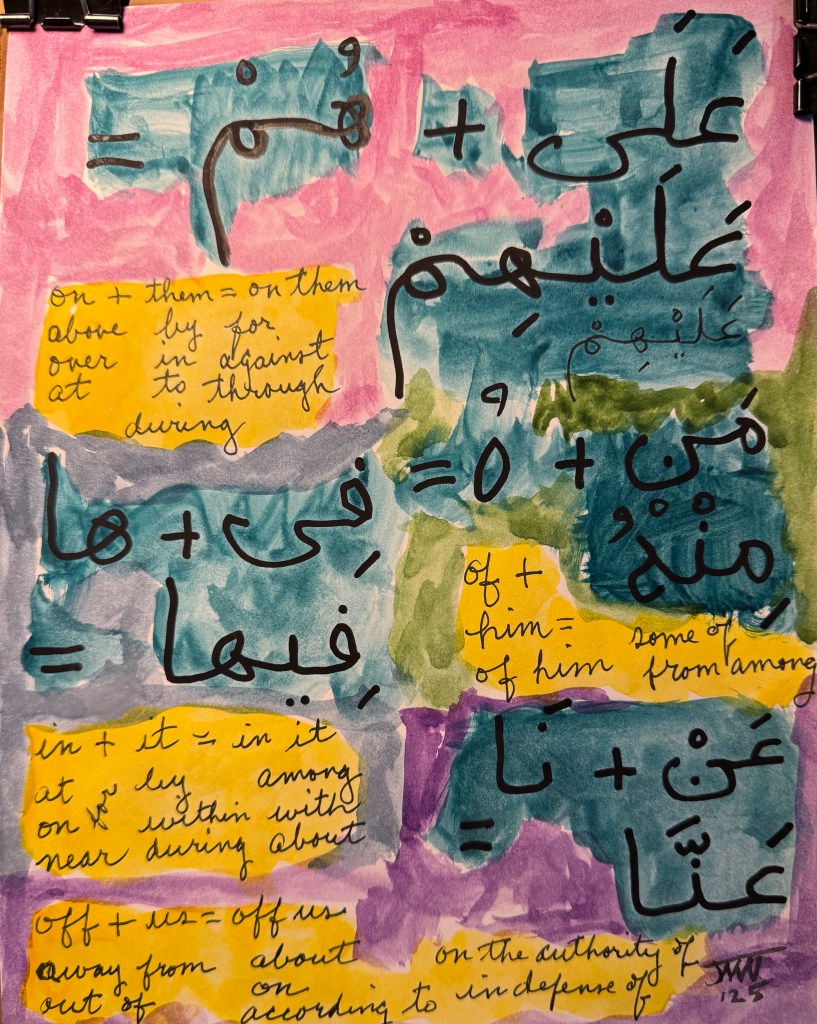 عَلَى + هُمْ =
عَلَيْهِمْ
عَلَيْهِمْ
on + them = on them
above by for
over in against
at to through
during
مَن + هُ =
مِنْهُ
of +
him =
of him
some of
from among
فِى + ها
= فِيها
in + it = in it
at for by among
on within with
near during about
عَنْ + نَا
= عَنَّا
off + us = off us
away from about on the authority of
out of on
according to in defense of